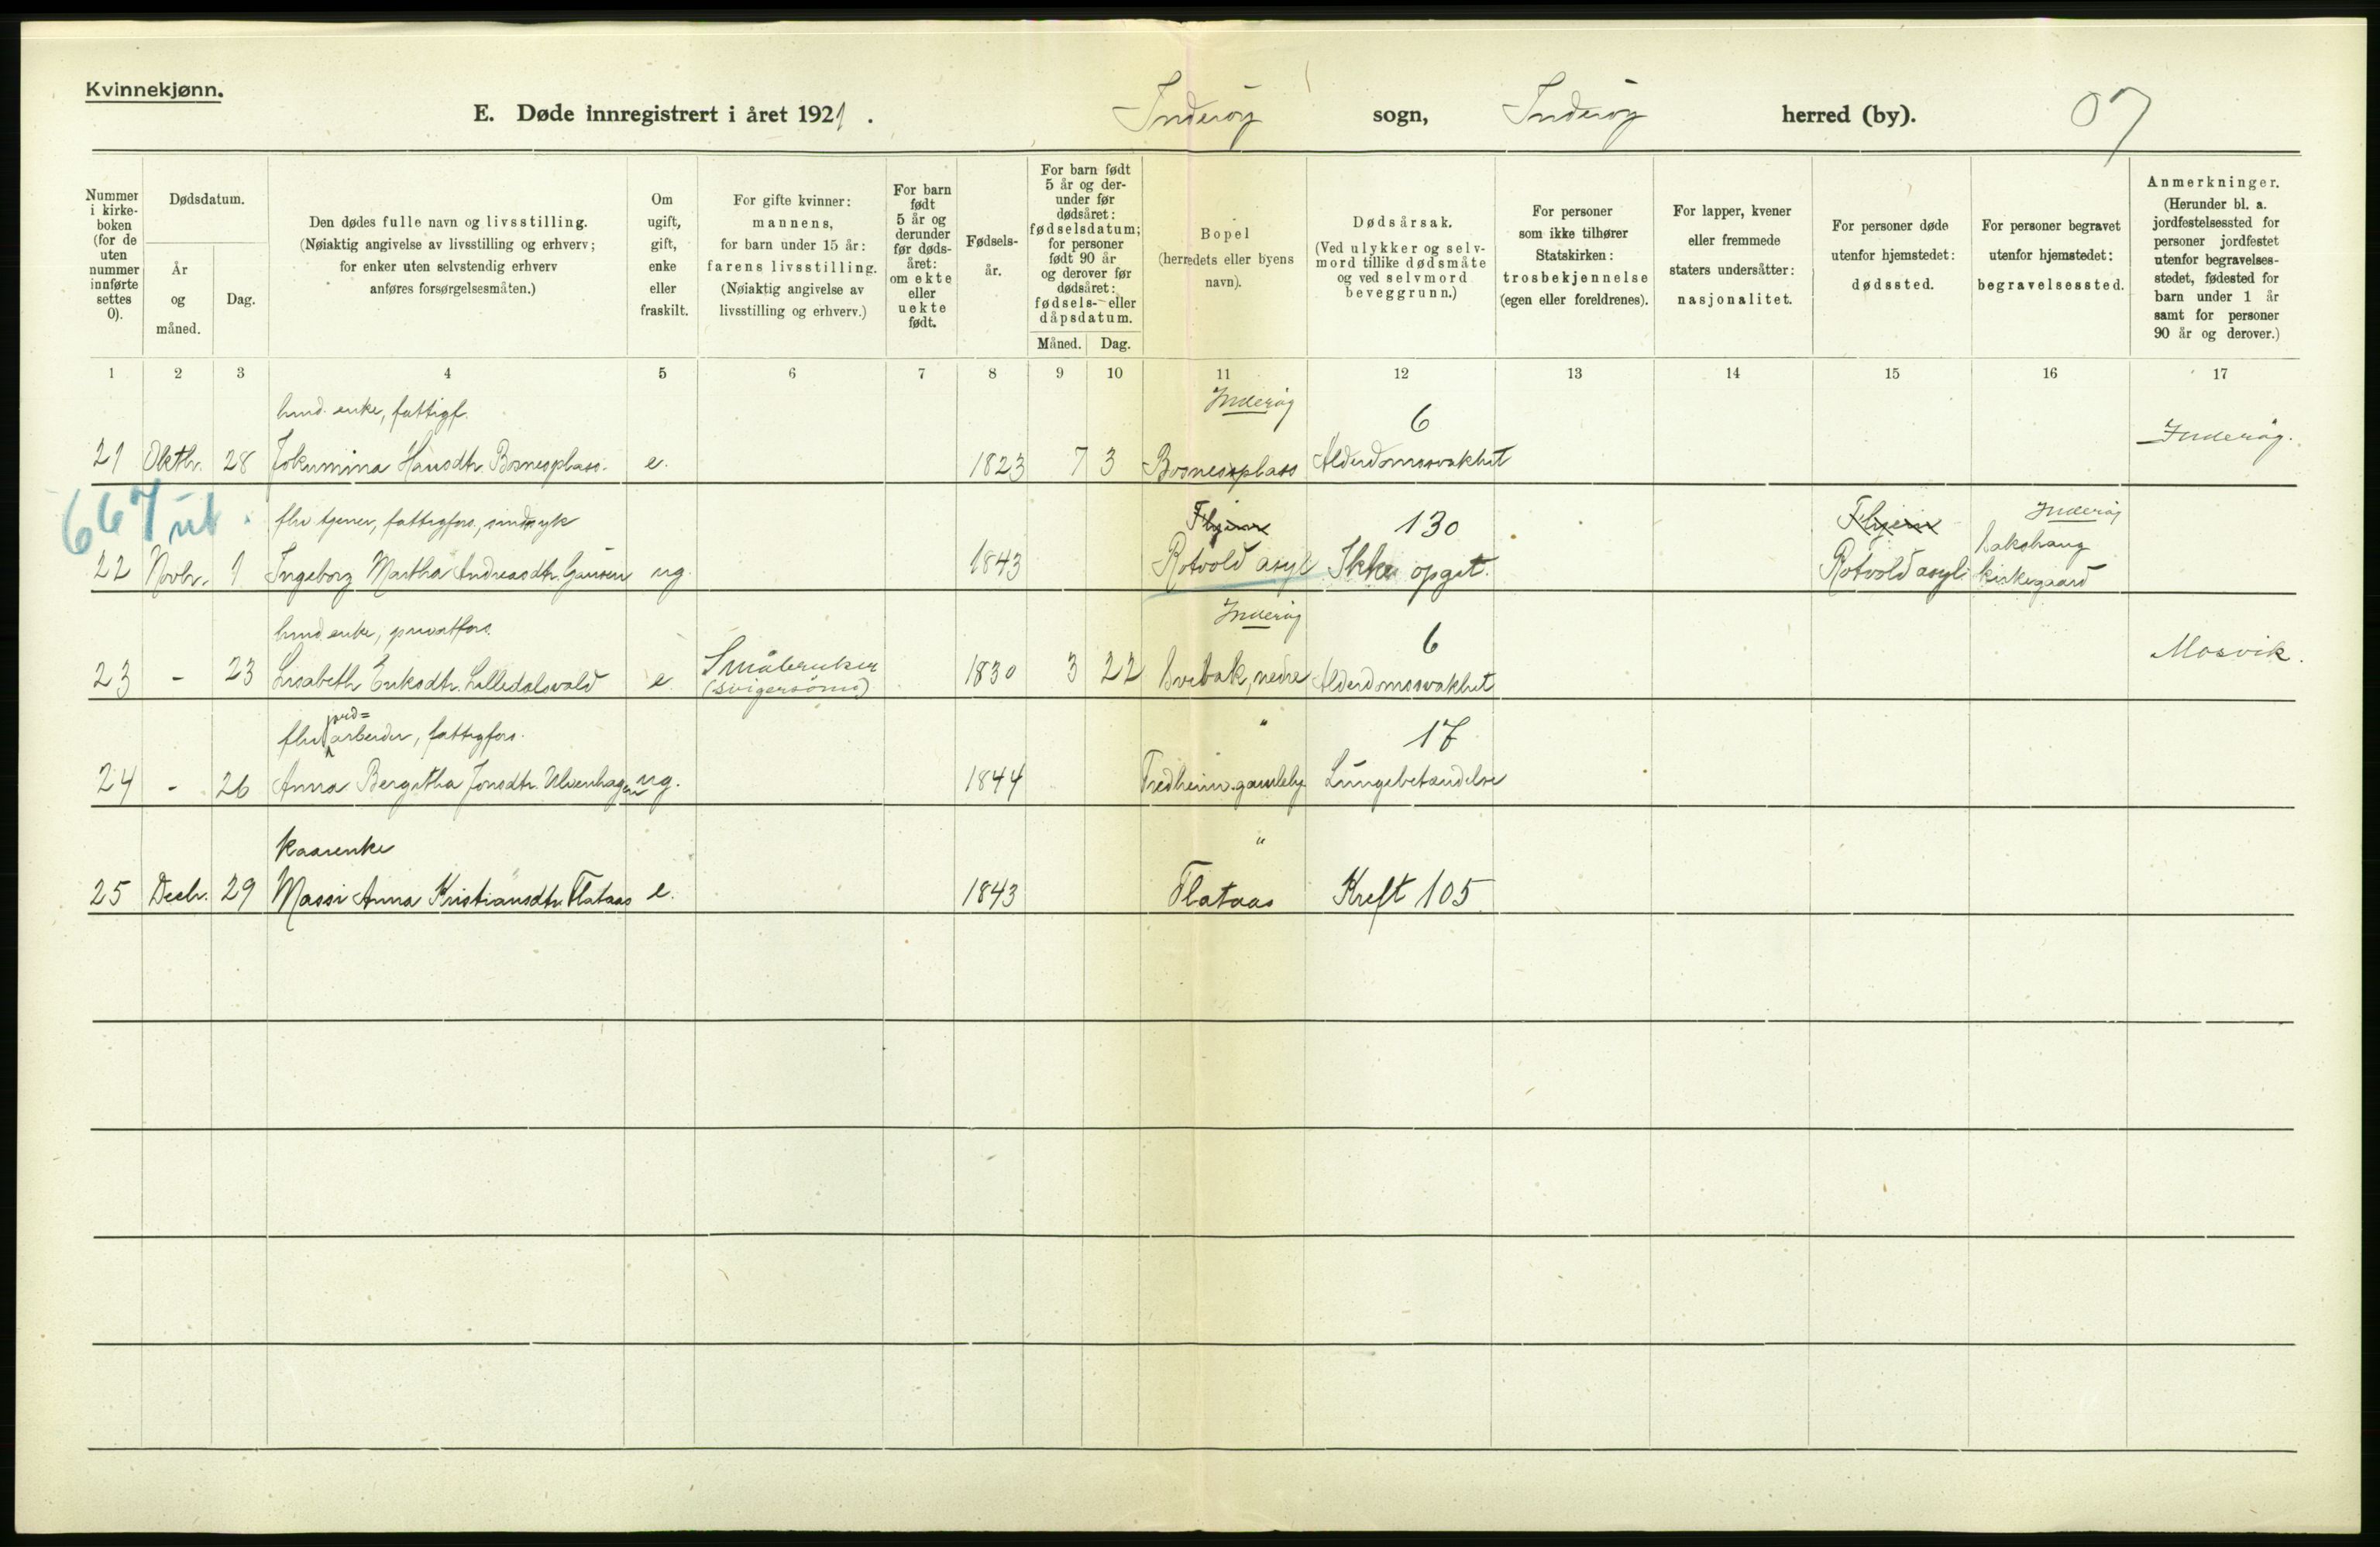 Kvinnekjønn.
E. Døde innregistrert i året 1921. Inderøy sogn, Inderøy herred (by). 07
Nummer i kirkeboken (for de uten nummer innførte settes 0).
Dødsdatum.
År og måned.
Dag.
Den dødes fulle navn og livsstilling. (Nøiaktig angivelse av livsstilling og erhverv; for enker uten selvstendig erhverv anføres forsørgelsesmåten.)
Om ugift, gift, enke eller fraskilt.
For gifte kvinner: mannens, for barn under 15 år: farens livsstilling. (Nøiaktig angivelse av livsstilling og erhverv.)
For barn født 5 år og derunder før dødsåret: om ekte eller uekte født.
Fødselsår.
For barn født 5 år og derunder før dødsåret: fødselsdatum; for personer født 90 år og derover før dødsåret: fødsels- eller dåpsdatum.
Måned. Dag.
Bopel (herredets eller byens navn).
Dødsårsak. (Ved ulykker og selvmord tillike dødsmåte og ved selvmord beveggrunn.)
For personer som ikke tilhører Statskirken: trosbekjennelse (egen eller foreldrenes).
For lapper, kvener eller fremmede staters undersåtter: nasjonalitet.
For personer døde utenfor hjemstedet: dødssted.
For personer begravet utenfor hjemstedet: begravelsessted.
Anmerkninger. (Herunder bl. a. jordfestelsessted for personer jordfestet utenfor begravelsesstedet, fødested for barn under 1 år samt for personer 90 år og derover.)
1 2 3 4 5 6 7 8 9 10 11 12 13 14 15 16 17
husd. enke, fattigf. Inderøy 6
21 Oktbr. 28 Jokumina Hansdtr. Bosnesplass. e. 1823 7 3 Bosnesplass Alderdomssvakhet Inderøy.
667 ut. fhv tjener, fattigfors., sindssyk 130 Inderøy
22 Novbr. 1 Ingeborg Martha Andreasdtr. ug. 1843 Rotvold asyl Ikke opgit. Rotvold asyl Sakshaug kirkegaard
husd. enke, privatfors. Inderøy 6
23 - 23 Lisabeth Eriksdtr. Lilledalsvald e. Småbruker (svigersønn) 1830 3 22 nedre Alderdomssvakhet Mosvik.
fhv jord=arbeider, fattigfors. " 17
24 - 26 Anna Bergitha Jonsdtr. Ulvenhagen ug. 1844 Fredheim. gamleh. Lungebetændelse
Kaarenke "
25 Decbr. 29 Massi Anna Kristiansdtr. Flataas e. 1843 Flataas Kreft 105